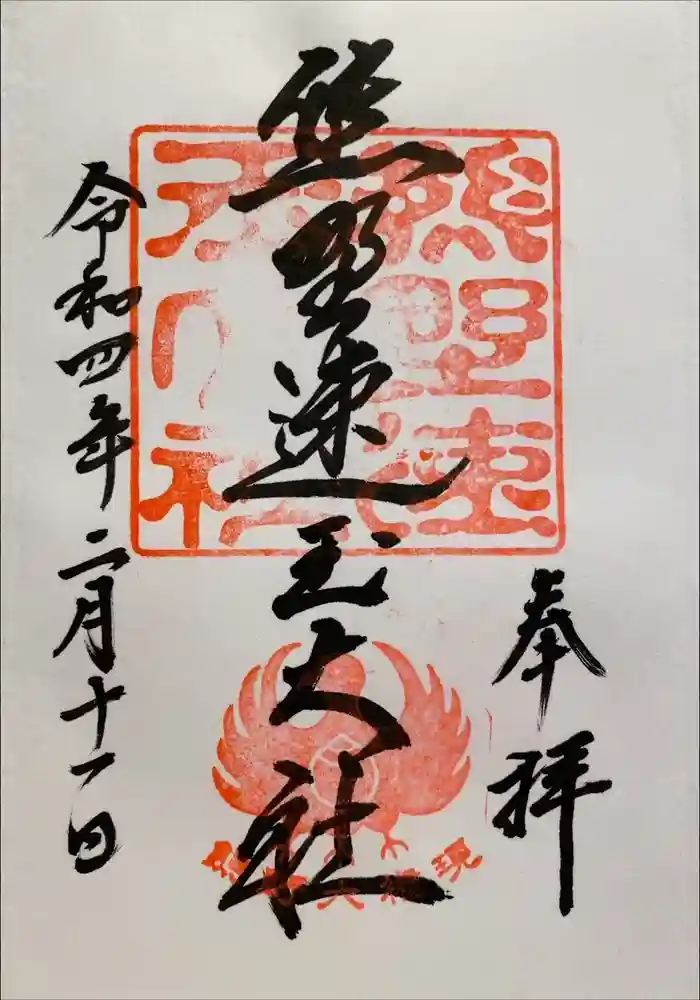 奉拝
熊野速玉大社
令和四年二月十一日
熊野速
玉大社